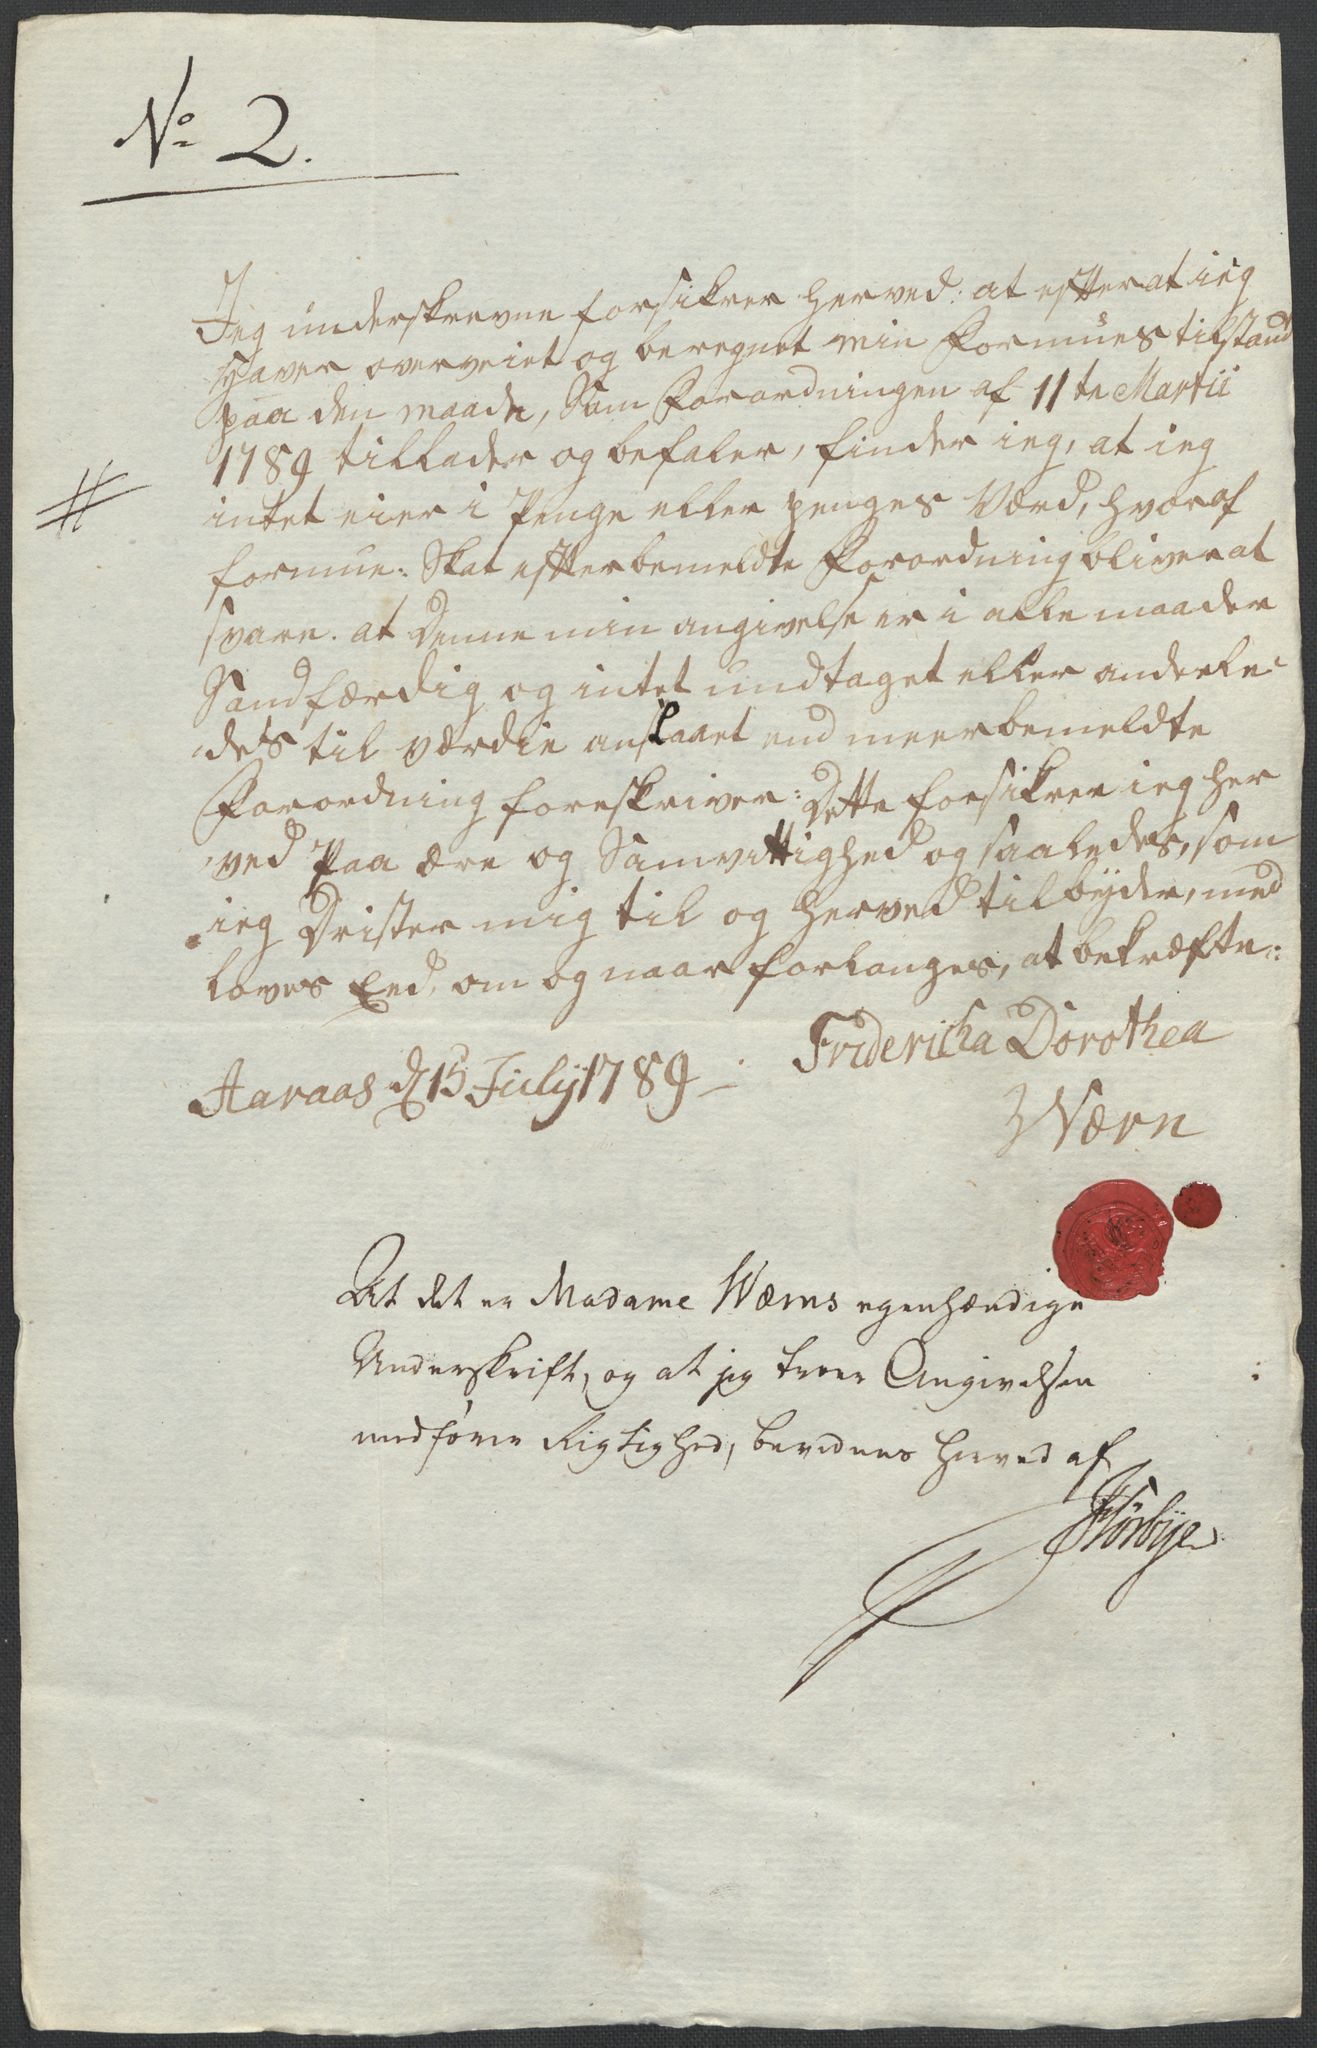 No 2.
Jeg underskrevne forsikrer herved: at efter at ieg
haver overveiet og beregnet min Formues tilstand
paa den maade, Som Forordningen af 11te Martii
1789 tillader og befaler, finder ieg, at ieg
#
intet eier i Penge eller penges Værd, hvoraf
formue: Skat efter bemeldte Forordning bliver at
svare. at Denne min angivelse er i alle maader
Sandfærdig og intet undtaget eller anderle-
des til værdie anslaaet end meerbemeldte
Forordning foreskriver: Dette forsikrer ieg her
ved Paa ære og Samvittighed og saaledes, som
ieg Drister mig til og herved tilbÿder, med
loves Eed, om og naar forlanges, at bekræfte:
Fridericha Dorothea
Aaraas d 15 Julij 1789
Wærn
At det er Madame Wærns egenhændige
Underskrift, og at jeg troer Angivelsen
medfører Rigtighed, bevidnes herved af